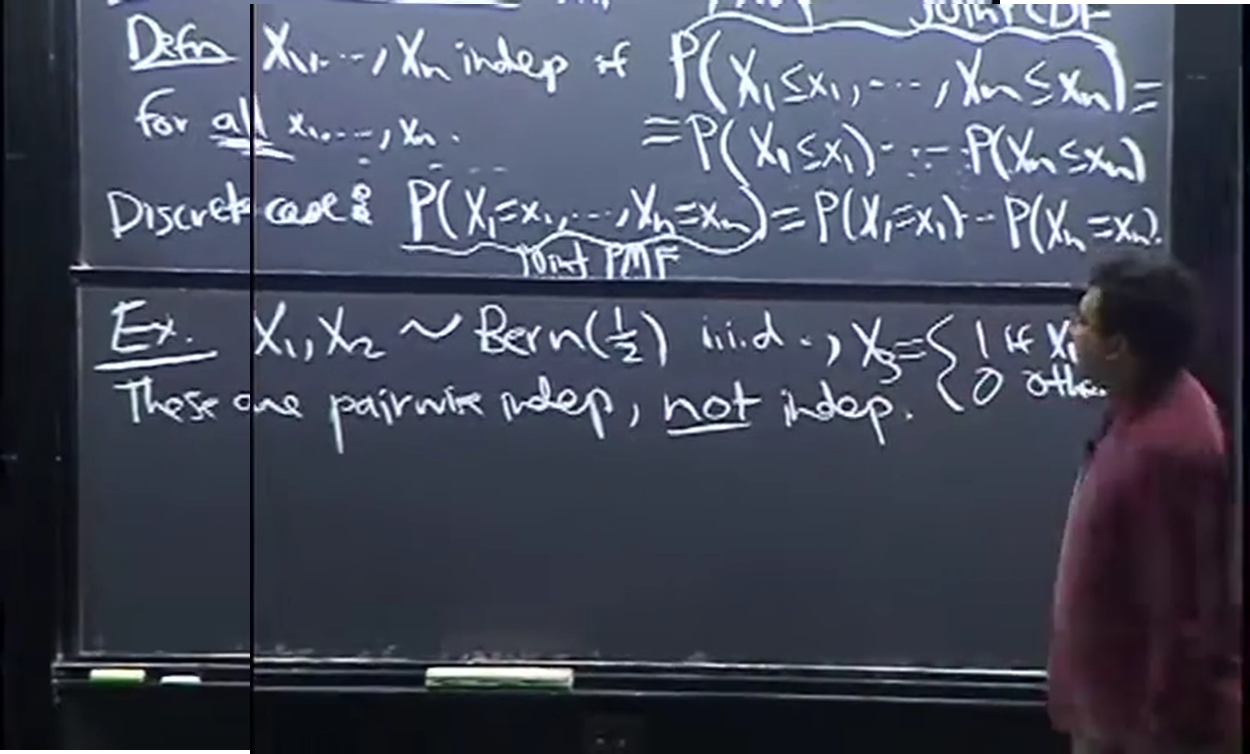 Joint CDF
Defn X₁, ..., Xₙ indep if P(X₁≤x₁, ..., Xₙ≤xₙ) =
for all x₁, ..., xₙ. = P(X₁≤x₁) ... P(Xₙ≤xₙ)
Discrete case: P(X₁=x₁, ..., Xₙ=xₙ) = P(X₁=x₁) ... P(Xₙ=xₙ).
Joint PMF
Ex. X₁, X₂ ~ Bern(½) i.i.d., X₃ = { 1 if X₁
0 other
These are pairwise indep, not indep.